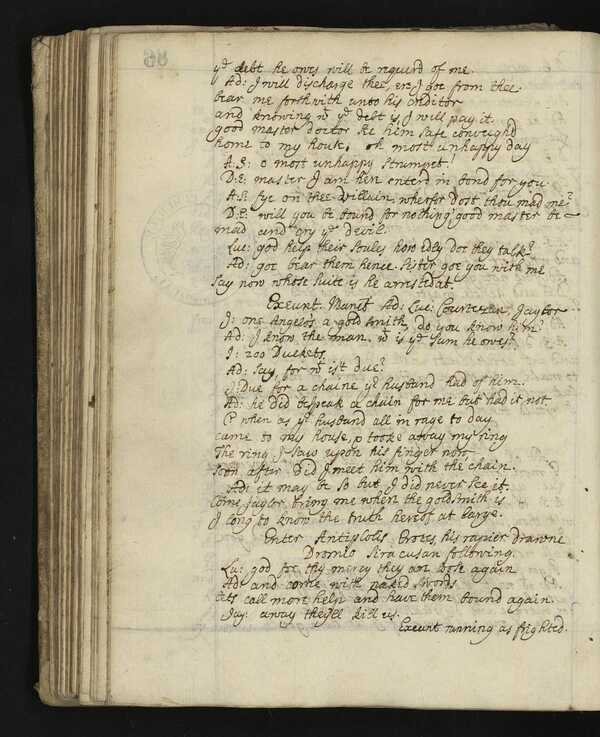 ye debt he owes will be requerd of me.
Ad: I will discharge thee, ere I goe from thee.
bear me forthwith unto his creditor
and knowing w ye debt is, I will pay it.
good master doctor see him safe conveighd
home to my house, oh most unhappy day
A.E: o most unhappy Strumpet!
D.E: master I am here enterd in bond for you.
A.E: fye on thee Villain, wherfor dost thou mad me?
D.E: will you be bound for nothing, good master be
mad and cry ye devil.
Luc: god help their soules, how idly doe they talk?
Ad: goe bear them hence. Sister goe you with me
Say now whose suite is he arrested at
Exeunt. Manet Ad: Luc: Courtezan, Jaylor.
J: one Angelo's a gold smith, do you know him?
Ad: I know the man. w is ye sum he owes?
J: 200 Duckets.
Ad: Say, for w is't due?
J: Due for a chaine yr husband had of him.
Ad: he did bespeak a chain for me but had it not
C when as yr husband all in rage to day
came to my house, & tooke away my ring
The ring I saw upon his finger now
soon after did I meet him with the chain.
Ad: it may be so but I did never see it.
Come Jaylor, bring me where the goldsmith is
I long to know the truth hereof at large.
Enter Antipholis Erotes, his rapier drawne
Dromio Siracusan following.
Lu: god for thy mercy they are loose again
Ad: and come with naked Swords
lets call more help and have them bound again.
Jay: away theyll kill us.
Exeunt running as frighted.